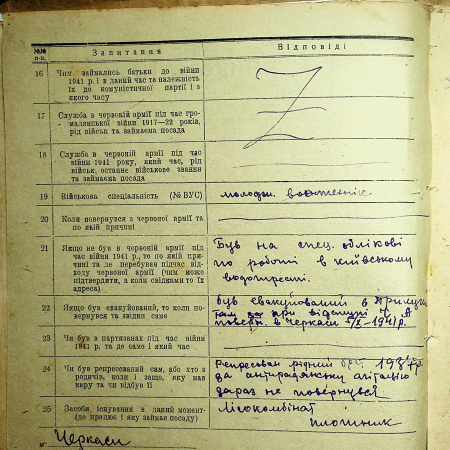 №№ п-п.
Запитання
Відповіді
16
Чим займались батьки до війни
1941 р. і в даний час та належність
їх до комуністичної партії і з
якого часу
17
Служба в червоній армії під час гро-
мадянської війни 1917—22 років,
рід військ та займаєма посада
18
Служба в червоній армії під час
війни 1941 року, який час, рід
військ, останнє військове звання
та займаєма посада
19
Військова спеціальність (№ ВУС)
20
Коли повернувся з червоної армії та
по якій причині
21
Якщо не був в червоній армії під
час війни 1941 р., то по якій при-
чині та де перебував підчас від-
ходу червоної армії (чим може
підтвердити, а коли свідками то їх
адреса)
Був на спец. облікові
по роботі в київському
водотресті.
22
Якщо був евакуйований, то коли по-
вернувся та звідки саме
був евакуйований в
в Черкаси 1941 р.
23
Чи був в партизанах під час війни
1941 р. та де саме і який час
24
Чи був репресований сам, або хто з
родичів, коли і защо, яку мав
кару та чи відбув її
Репресован рідний брат 1937 р.
за антирадянську агітацію
зараз не повернувся
25
Засоби існування в даний момент-
(де працює і яку займає посаду)
Лісокомбінат
плотник
м. Черкаси